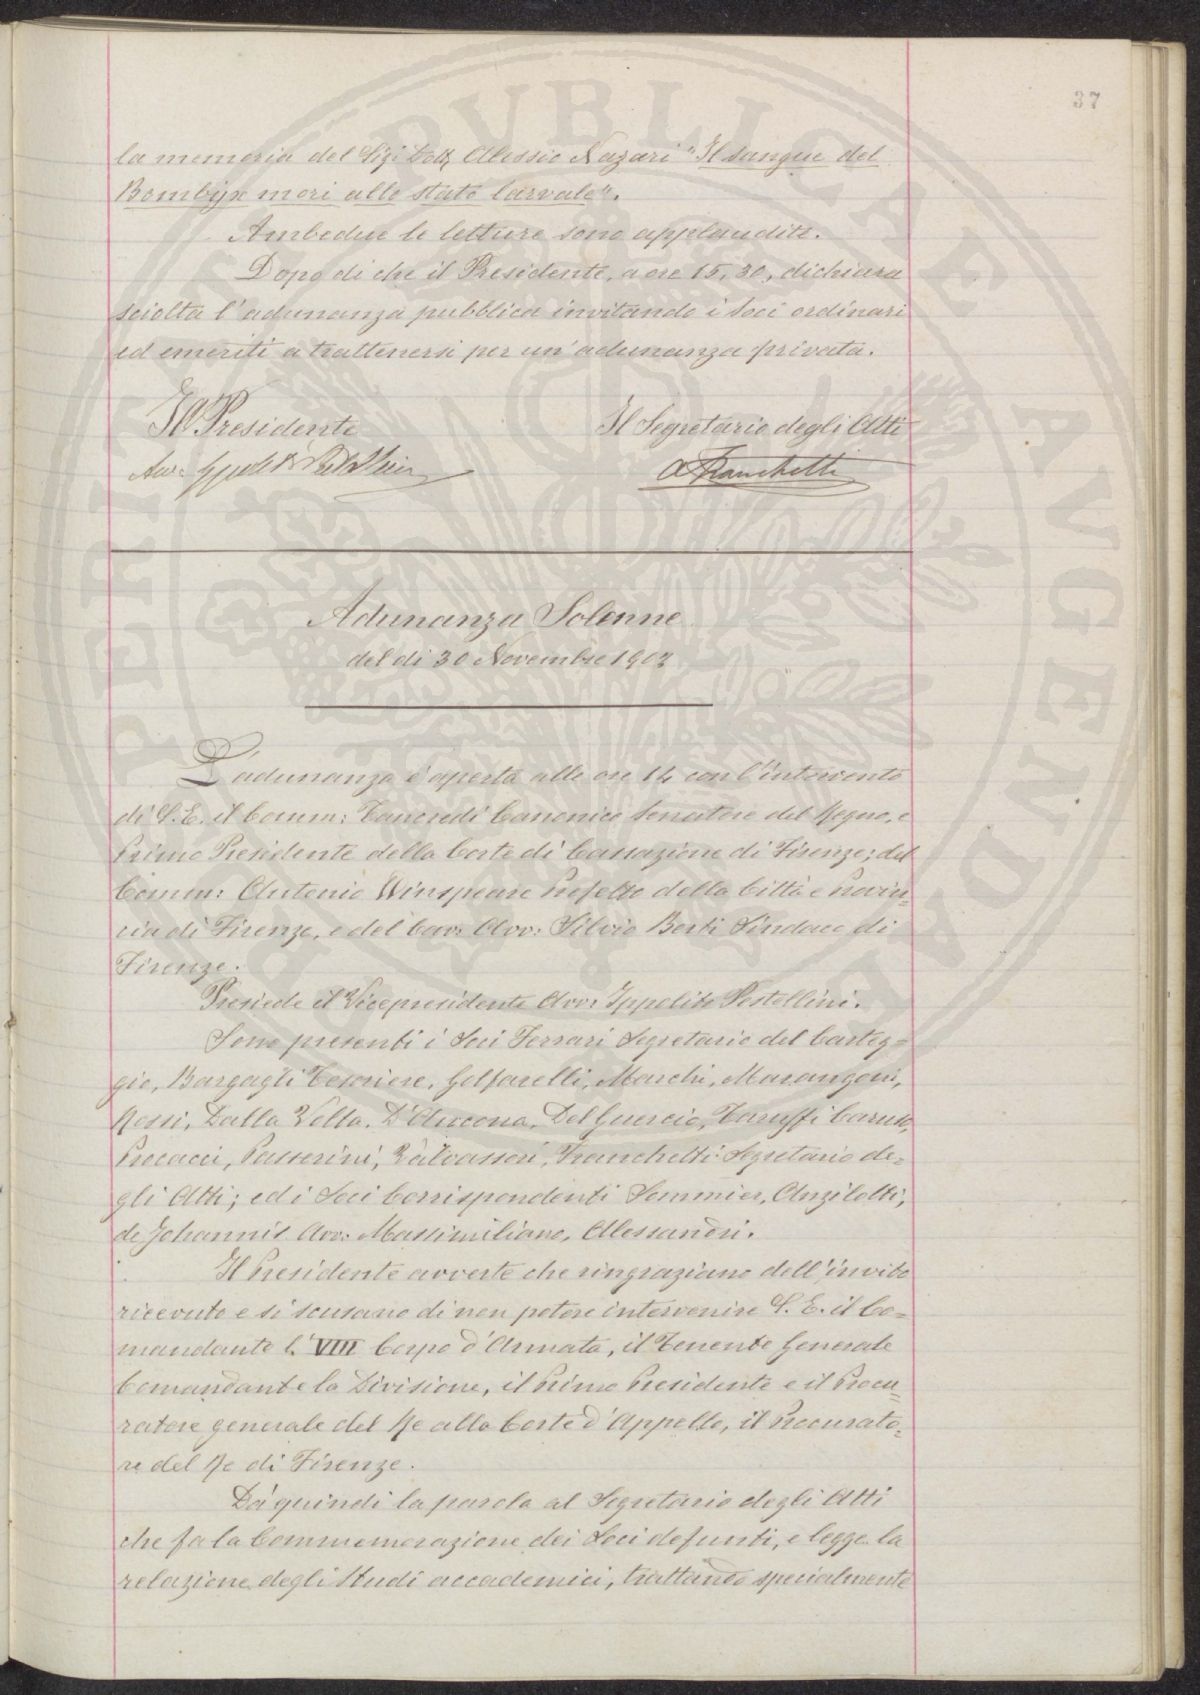 37
la memoria del Sigr Dott. Alessio Nazari "Il sangue del
Bombijx mori allo stato larvale".
Ambedue le letture sono applaudite.
Dopo di che il Presidente, a ore 15,30, dichiara
sciolta l'adunanza pubblica invitando i Soci ordinari
ed emeriti a trattenersi per un'adunanza privata.
Il Presidente
Il Segretario degli Atti
Avv.
A Franchetti
Adunanza Solenne
del dì 30 Novembre 1902
L'adunanza è aperta alle ore 14 con l'intervento
di S. E. il Comm: Tancredi Canonico Senatore del Regno, e
Primo Presidente della Corte di Cassazione di Firenze; del
Comm: Antonio Winspeare Prefetto della Città e Provin=
cia di Firenze, e del Cav: Avv: Silvio Berti Sindaco di
Firenze.
Presiede il Vicepresidente Avv: Ippolito Pestellini.
Sono presenti i Soci Ferrari Segretario del Carteg=
gio, Bargagli, Golfarelli, Marchi, Marangoni,
Rossi, Dalla Volta, D'Ancona, Del Guercio, Taruffi, Caruso,
Procacci, Passerini, Valvassori, Franchetti Segretario de=
gli Atti; ed i Soci Corrispondenti Sommier, Anzilotti,
de Johannis Avv: Massimiliano, Alessandri.
Il Presidente avverte che ringraziano dell'invito
ricevuto e si scusano di non potere intervenire S. E. il Co=
mandante l'VIII Corpo d'Armata, il Tenente Generale
Comandante la Divisione, il Primo Presidente e il Procu=
ratore generale del Re alla Corte d'Appello, il Procurato=
re del Re di Firenze.
Dà quindi la parola al Segretario degli Atti
che fa la Commemorazione dei Soci defunti, e legge la
relazione degli Studi accademici, trattando specialmente
PUBLICAE
AVGENDAE